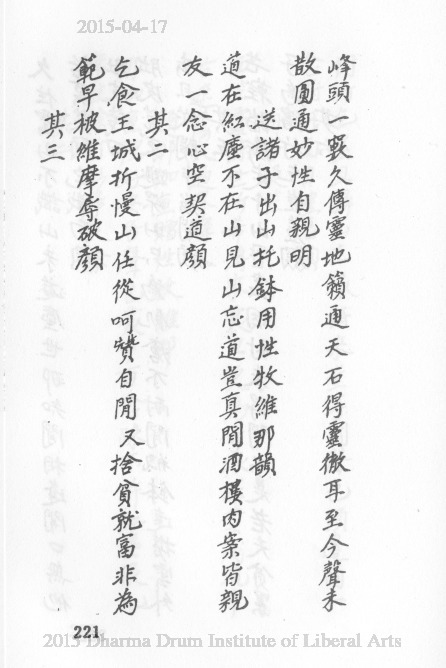 2015-04-17
峰頭一竅久傳靈地籟通天石得靈徹耳至今聲未
散圓通妙性自親明
送諸子出山托鉢用性牧維那韻
道在紅塵不在山見山忘道豈真閒酒樓肉案皆親
友一念心空契道顏
其二
乞食王城折慢山任從呵贊自閒又捨貧就富非為
範早被維摩辱破顏
其三
221
2015 Dharma Drum Institute of Liberal Arts